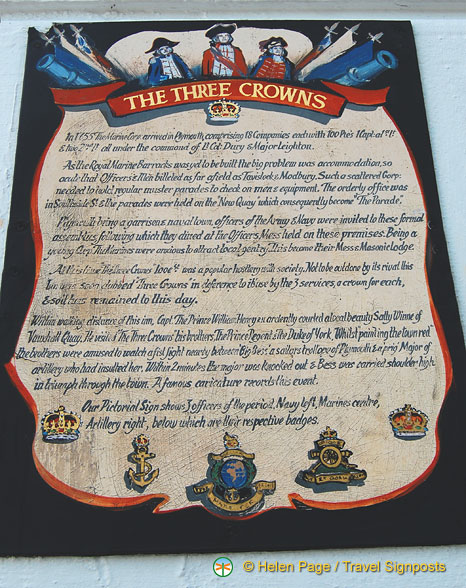 THE THREE CROWNS
In 1755 The Marine Corp arrived in Plymouth, comprising 18 Companies each with 100 Pte's 1 Capt.
all under the command of Lt Col: Dury & Major Leighton.
As the Royal Marine Barracks was yet to be built the big problem was accommodation, so
acute that Officers & Men billeted as far afield as Tavistock & Modbury. Such a scattered Corp:
needed to hold regular muster parades to check on men & equipment. The orderly office was
in Southside St & the parades were held on the "New Quay" which consequently become "The Parade".
being a garrison & naval town, officers of the Army & Navy were invited to these formal
assemblies, following which they dined at The Officers Mess held on these premises. Being a
young Corp The Marines were anxious to attract local gentry. This became their Mess & Masonic Lodge.
At this time The Crowns was a popular hostlery with society. Not to be outdone by its rival this
Inn was soon dubbed Three Crowns in deference to its use by the 3 services, a crown for each,
& so it has remained to this day.
Within walking distance of this inn, Capt. The Prince William Henry ardently courted a local beauty Sally Winne of
Vauxhall Quay. He visited The Three Crowns his brothers, The Prince Regent & the Duke of York. Whilst painting the town red
the brothers were amused to watch a fist fight nearby between Big Bess a sailors trollope of Plymouth & a prig Major of
artillery who had insulted her. Within 2 minutes the major was knocked out & Bess was carried shoulder high
in triumph through the town. A famous caricature records this event.
Our Pictorial Sign shows 3 officers of the period, Navy left, Marines centre,
Artillery right, below which are their respective badges.
© Helen Page / Travel Signposts